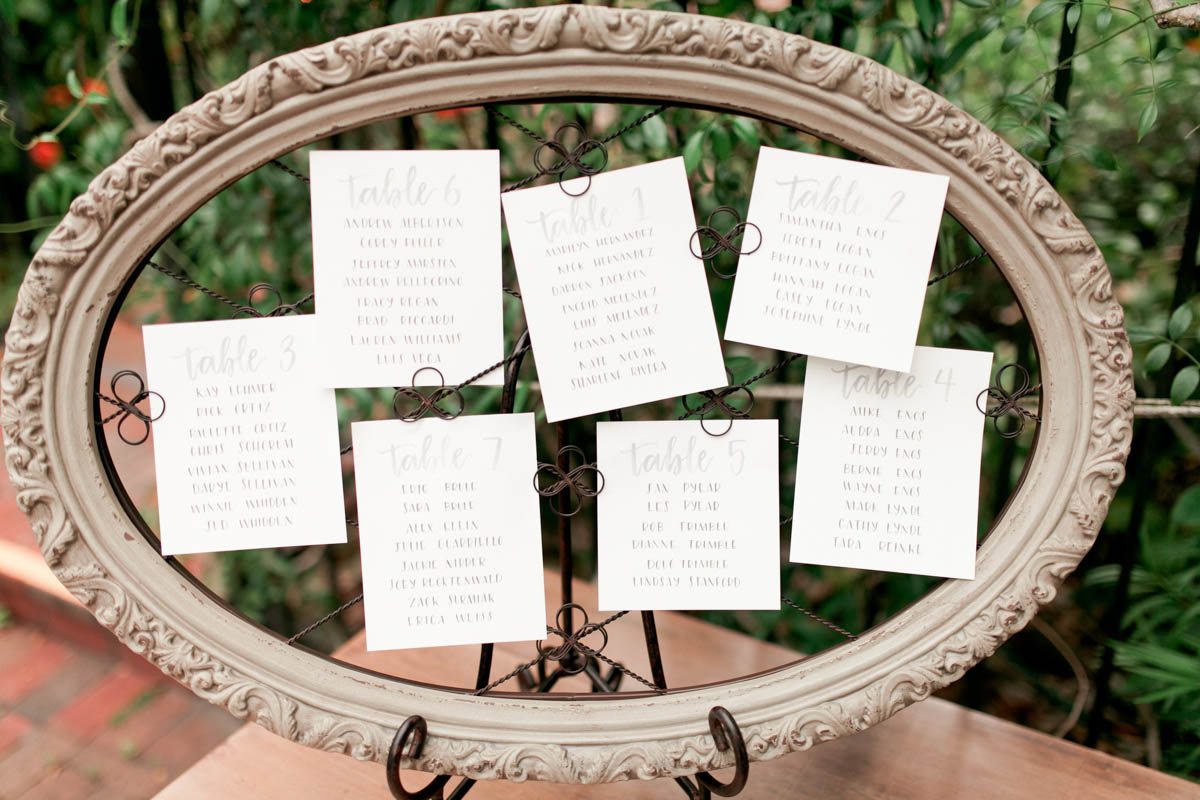 table 6
ANDREW ALBERTSON
COREY FULLER
JEFFREY MARSTON
ANDREW PELLEGRINO
TRACY REGAN
BRAD RICCARDI
LAUREN WILLIAMS
LUIS VEGA
table 1
MARILYN HERNANDEZ
NICK HERNANDEZ
DARRON JACKSON
INGRID MELENDEZ
LUIS MELENDEZ
JOANNA NOVAK
KATE NOVAK
SHARLENE RIVERA
table 2
SAMANTHA ENOS
TERESA LOGAN
BRITTANY LOGAN
HANNAH LOGAN
CASEY LOGAN
JOSEPHINE LYNDE
table 3
KAY LOHMER
RICK ORTIZ
PAULETTE ORTIZ
CHRIS SCHORAH
VIVIAN SULLIVAN
DARYL SULLIVAN
WINNIE WHIDDEN
JUD WHIDDEN
table 7
ERIC BRLE
SARA BRLE
ALEX KLEIN
JULIE GUARRIELLO
JACKIE NIPPER
JODY ROCKTENWALD
ZACK
ERICA WEISS
table 5
JAN RYEAR
LES RYEAR
ROB TRIMBLE
DIANNE TRIMBLE
DOUG TRIMBLE
LINDSAY STANFORD
table 4
MIKE ENOS
AUDRA ENOS
JERRY ENOS
BERNIE ENOS
WAYNE ENOS
MARK LYNDE
CATHY LYNDE
TARA REINKE